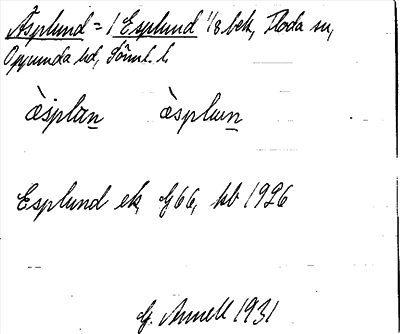 Äsplund = 1 Esplund 1/8 bek, Floda sn,
Oppunda hd, Söml. l.
äsplan äsplun
Esplund ek, G66, kb 1926
G. Annell 1931